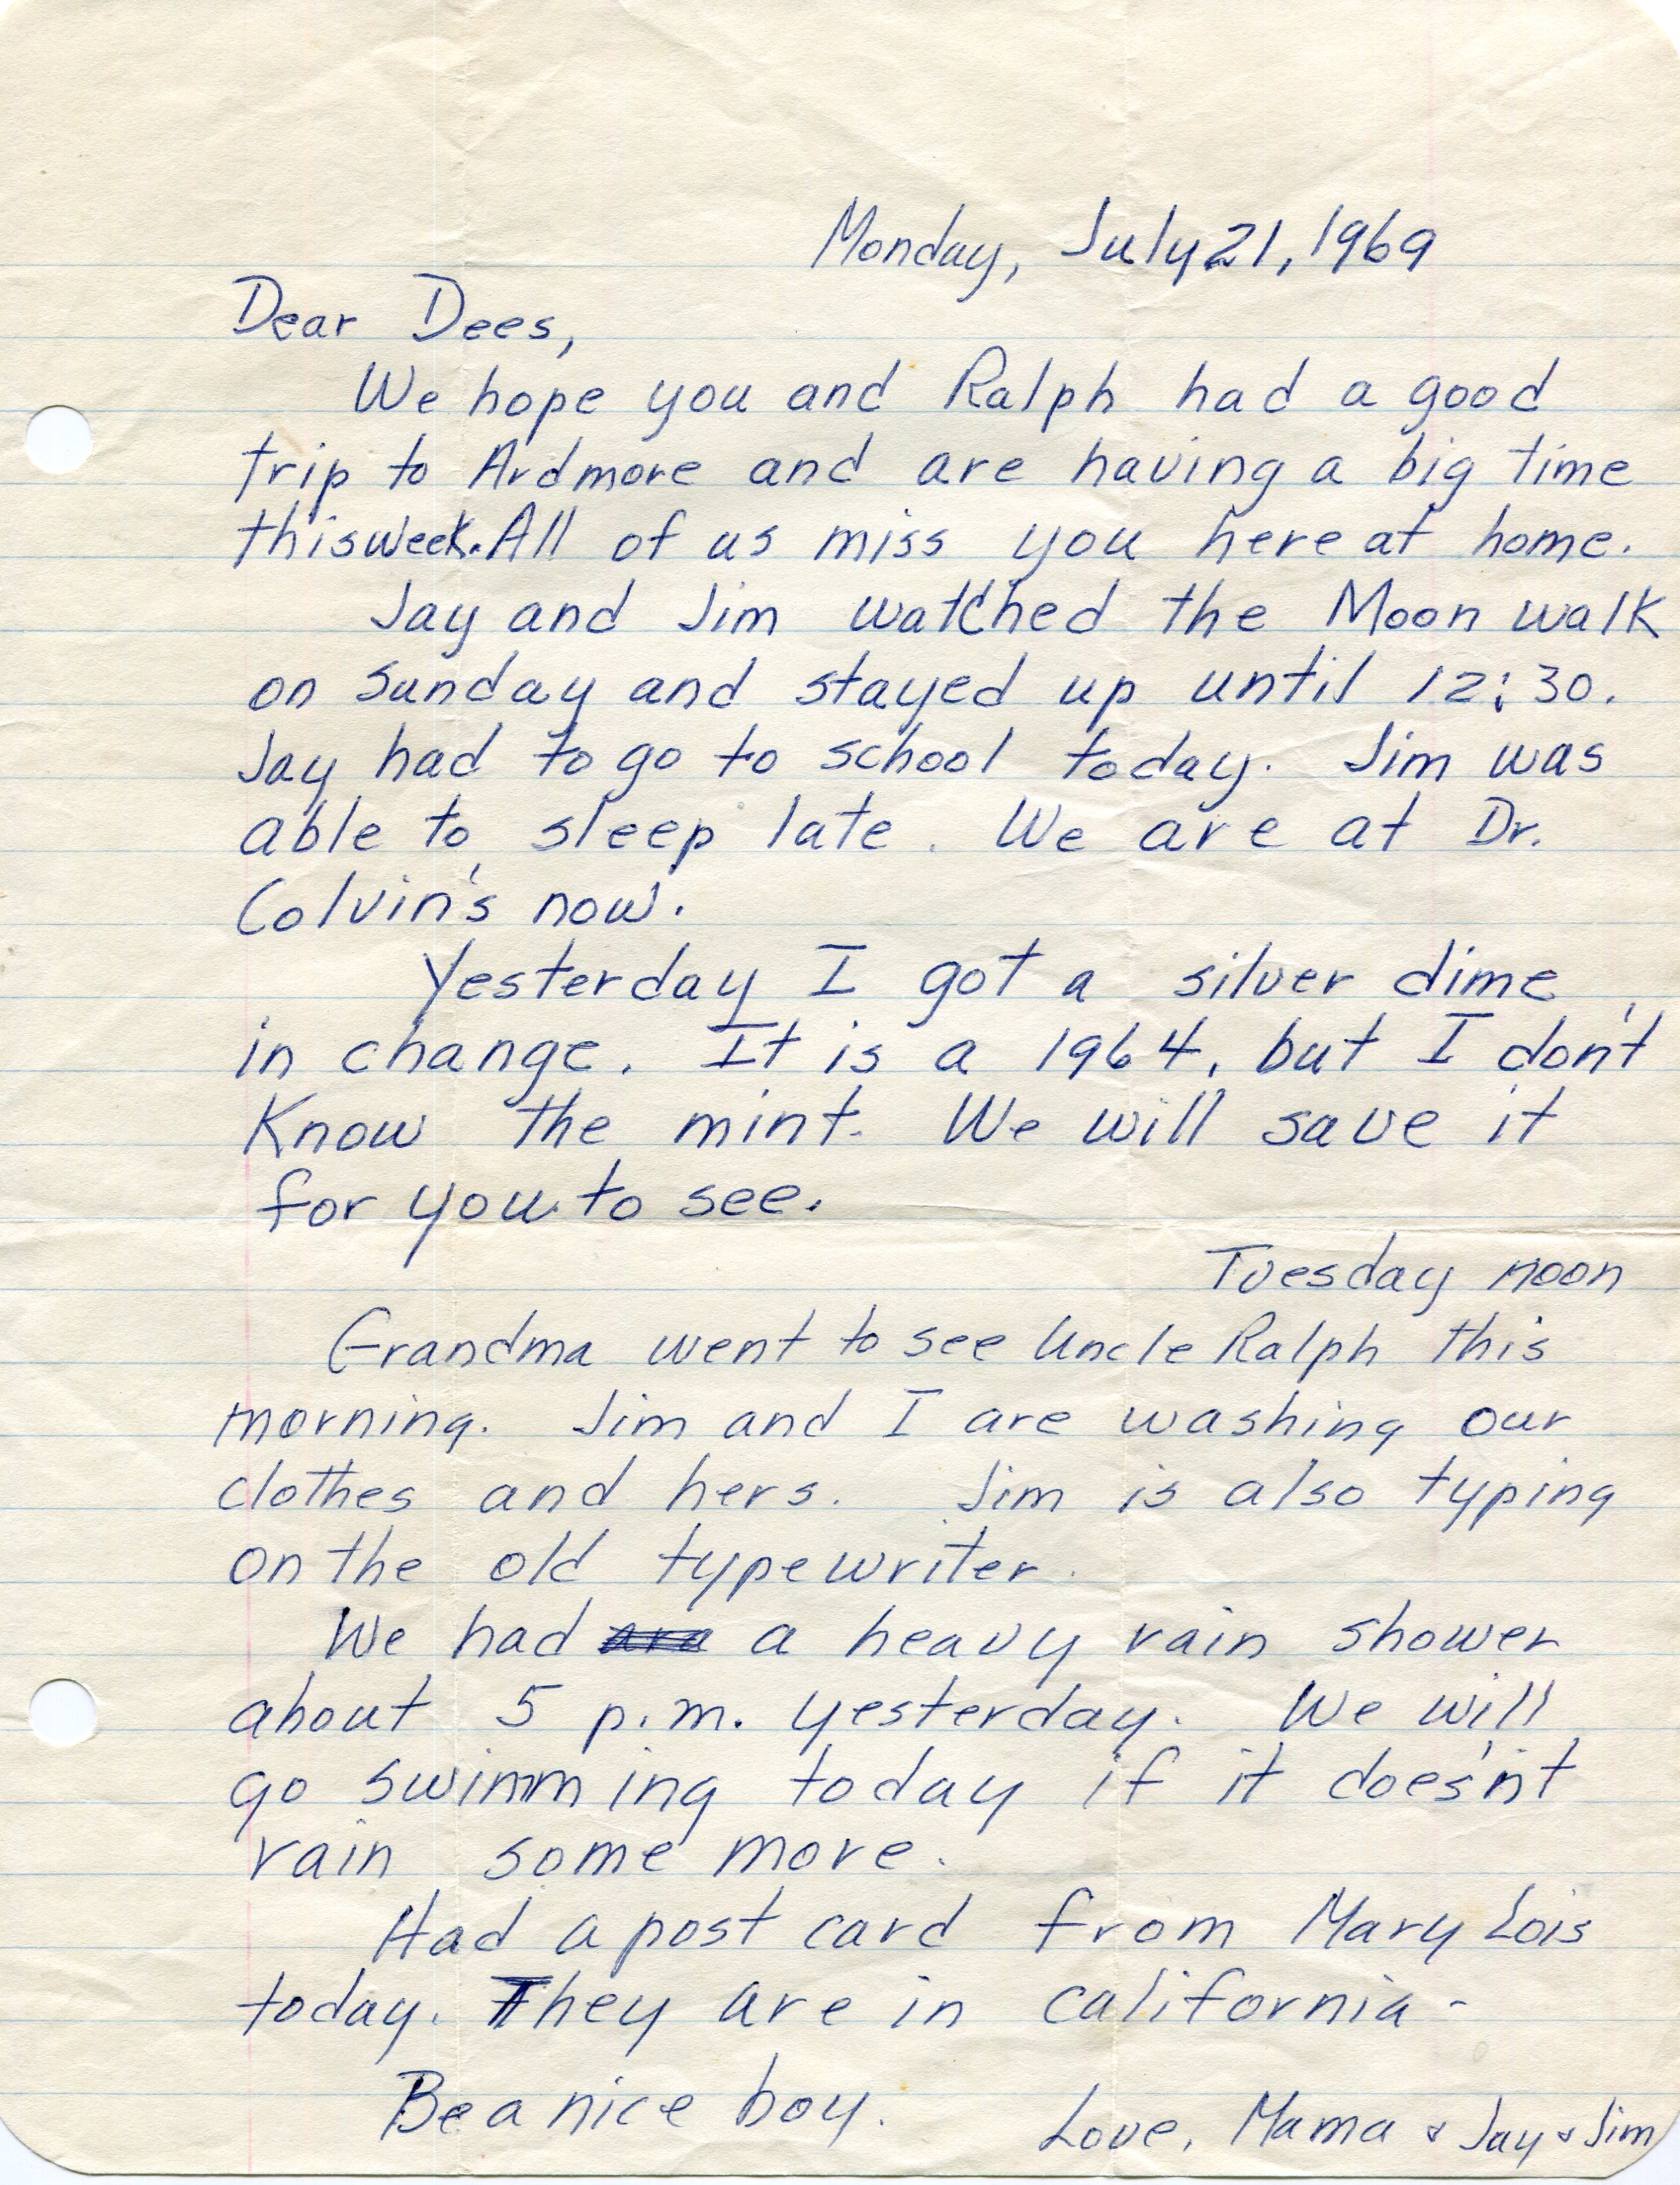 Monday, July 21, 1969
Dear Dees,
We hope you and Ralph had a good
trip to Ardmore and are having a big time
this week. All of us miss you here at home.
Jay and Jim watched the Moon walk
on Sunday and stayed up until 12:30.
Jay had to go to school today. Jim was
able to sleep late. We are at Dr.
Colvin's now.
Yesterday I got a silver dime
in change. It is a 1964, but I don't
know the mint. We will save it
for you to see.
Tuesday noon
Grandma went to see Uncle Ralph this
morning. Jim and I are washing our
clothes and hers. Jim is also typing
on the old typewriter.
We had a heavy rain shower
about 5 p.m. yesterday. We will
go swimming today if it does'nt
rain some more.
Had a post card from Mary Lois
today. They are in California-
Be a nice boy.
Love, Mama & Jay & Jim